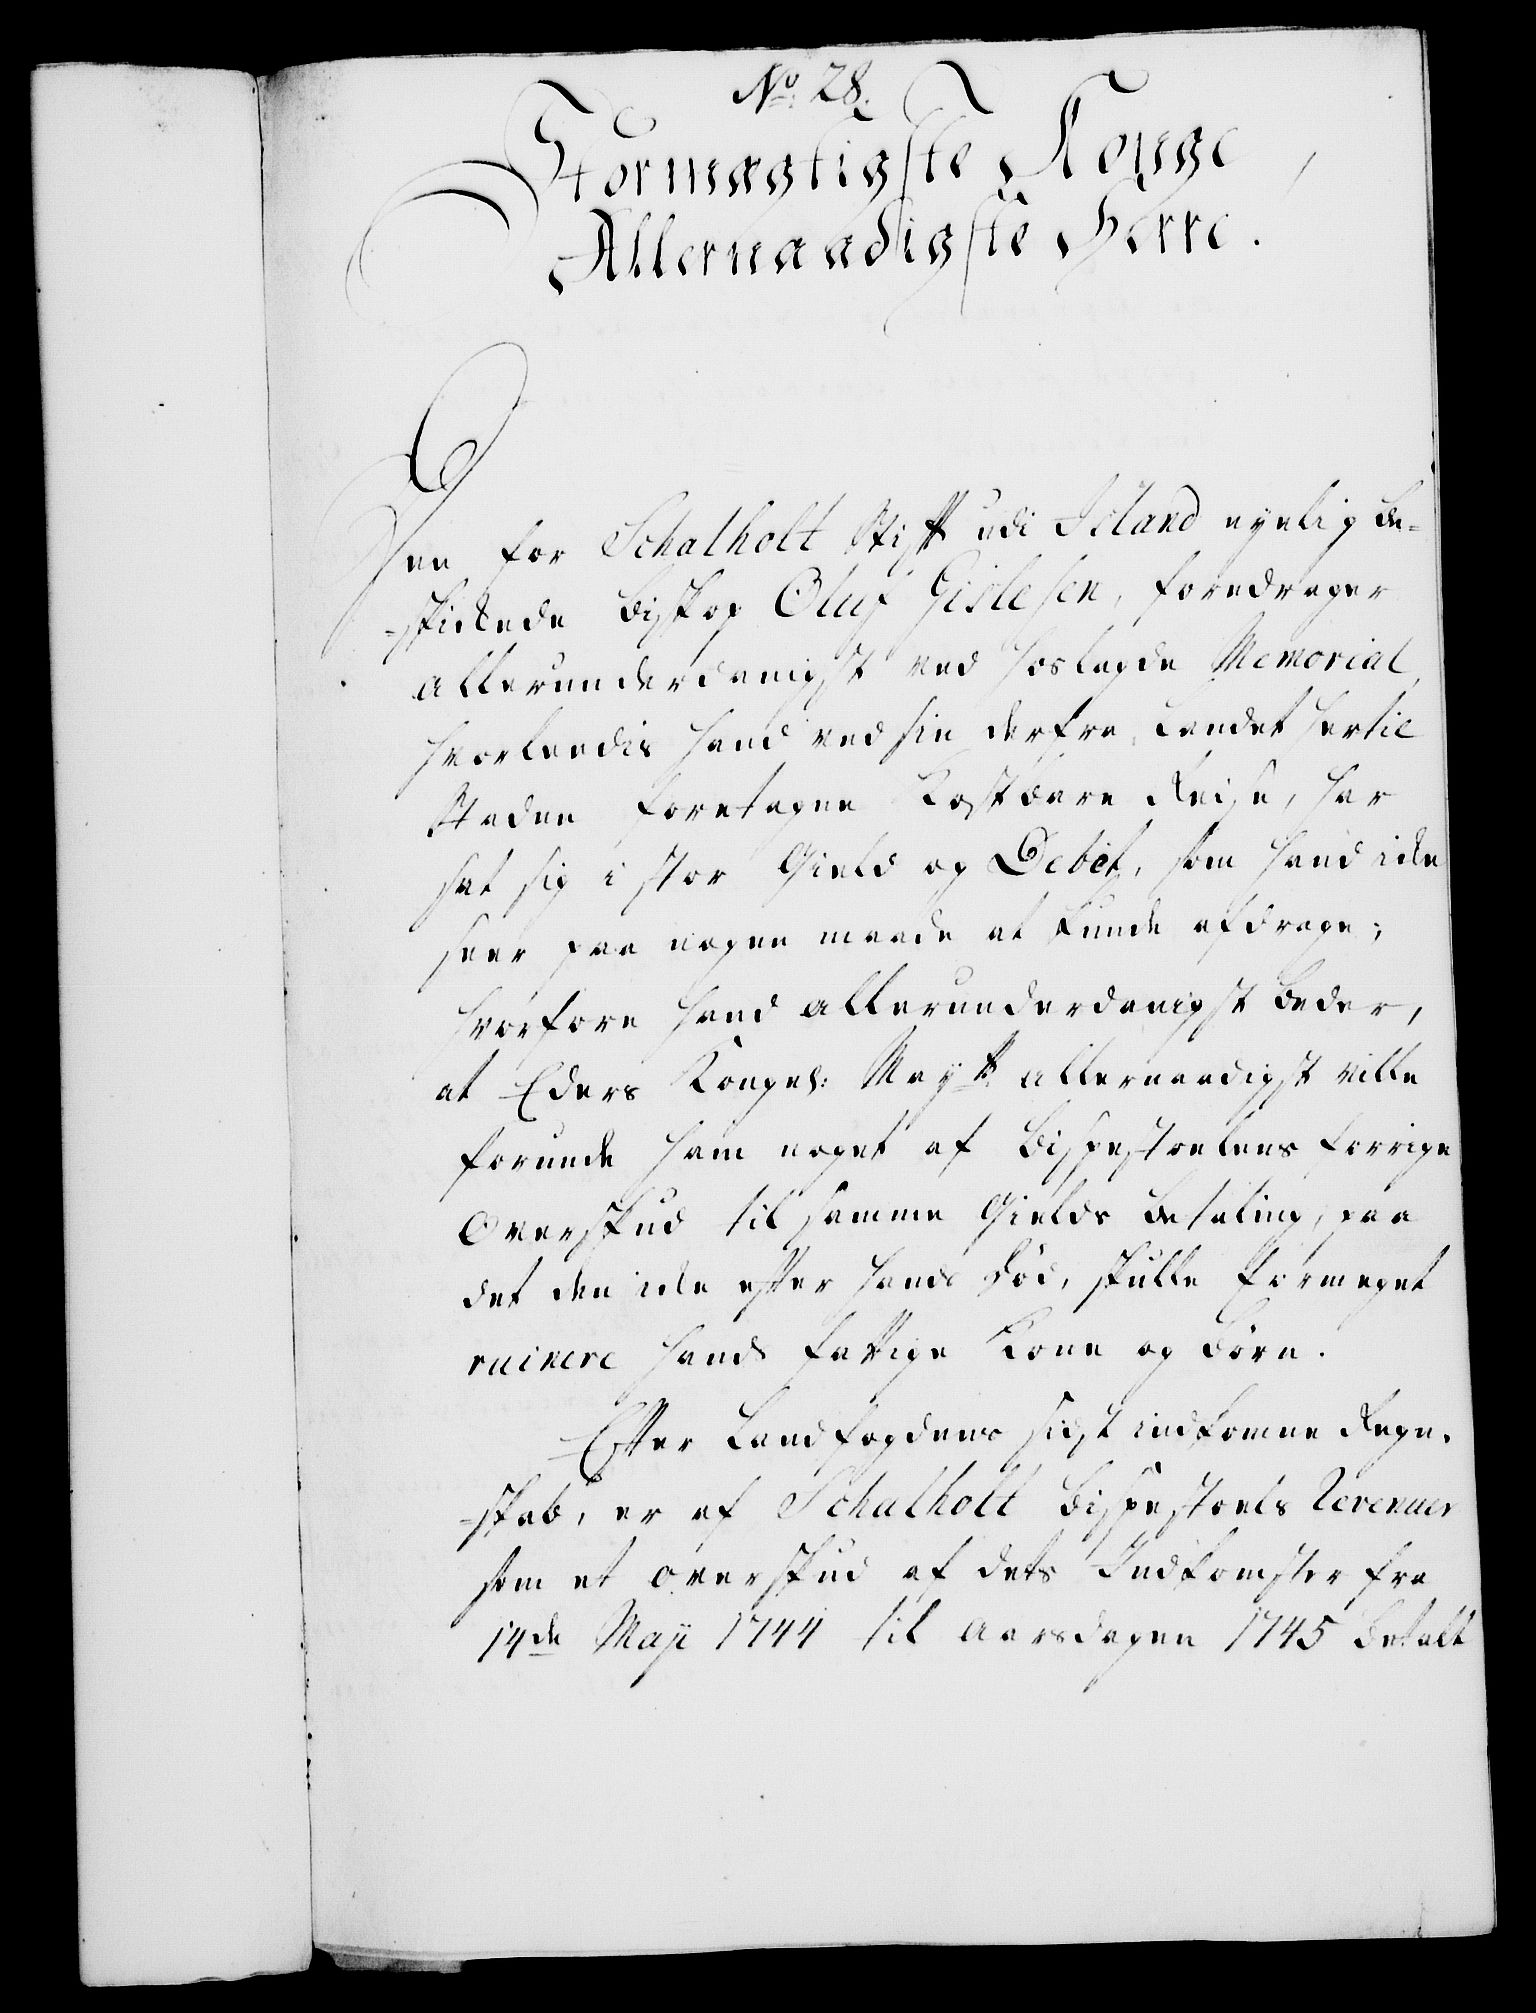 No. 28.
Stormægtigste Konge,
Allernaadigste Herre.
Den for Schalholt Stift udi Island nyelig be-
-skickede Biskop Oluf Gislesen, foredrager
allerunderdanigst ved hoslagde Memorial,
hvorleedis hand ved sin derfra Landet hertil
Staden foretagne kostbare Reise, har
sat sig i stor Gield og Debet, som hand icke
seer paa nogen maade at kunde afdrage;
hvorfore hand allerunderdanigst beder,
at Eders Kongel: Mayts. allernaadigst ville
forunde ham noget af Bispestoelens forrige
Overskud til samme Gields betaling, paa
det den icke efter hands Død, skulle formeget
ruinere hands fattige Kone og Børn.
Efter Landfogdens sidst indkomne Regn-
-skab, er af Schalholt Bispestoels Revenuer
som et overskud af dets Indkomster fra
14de Maji 1744 til aarsdagen 1745 betalt